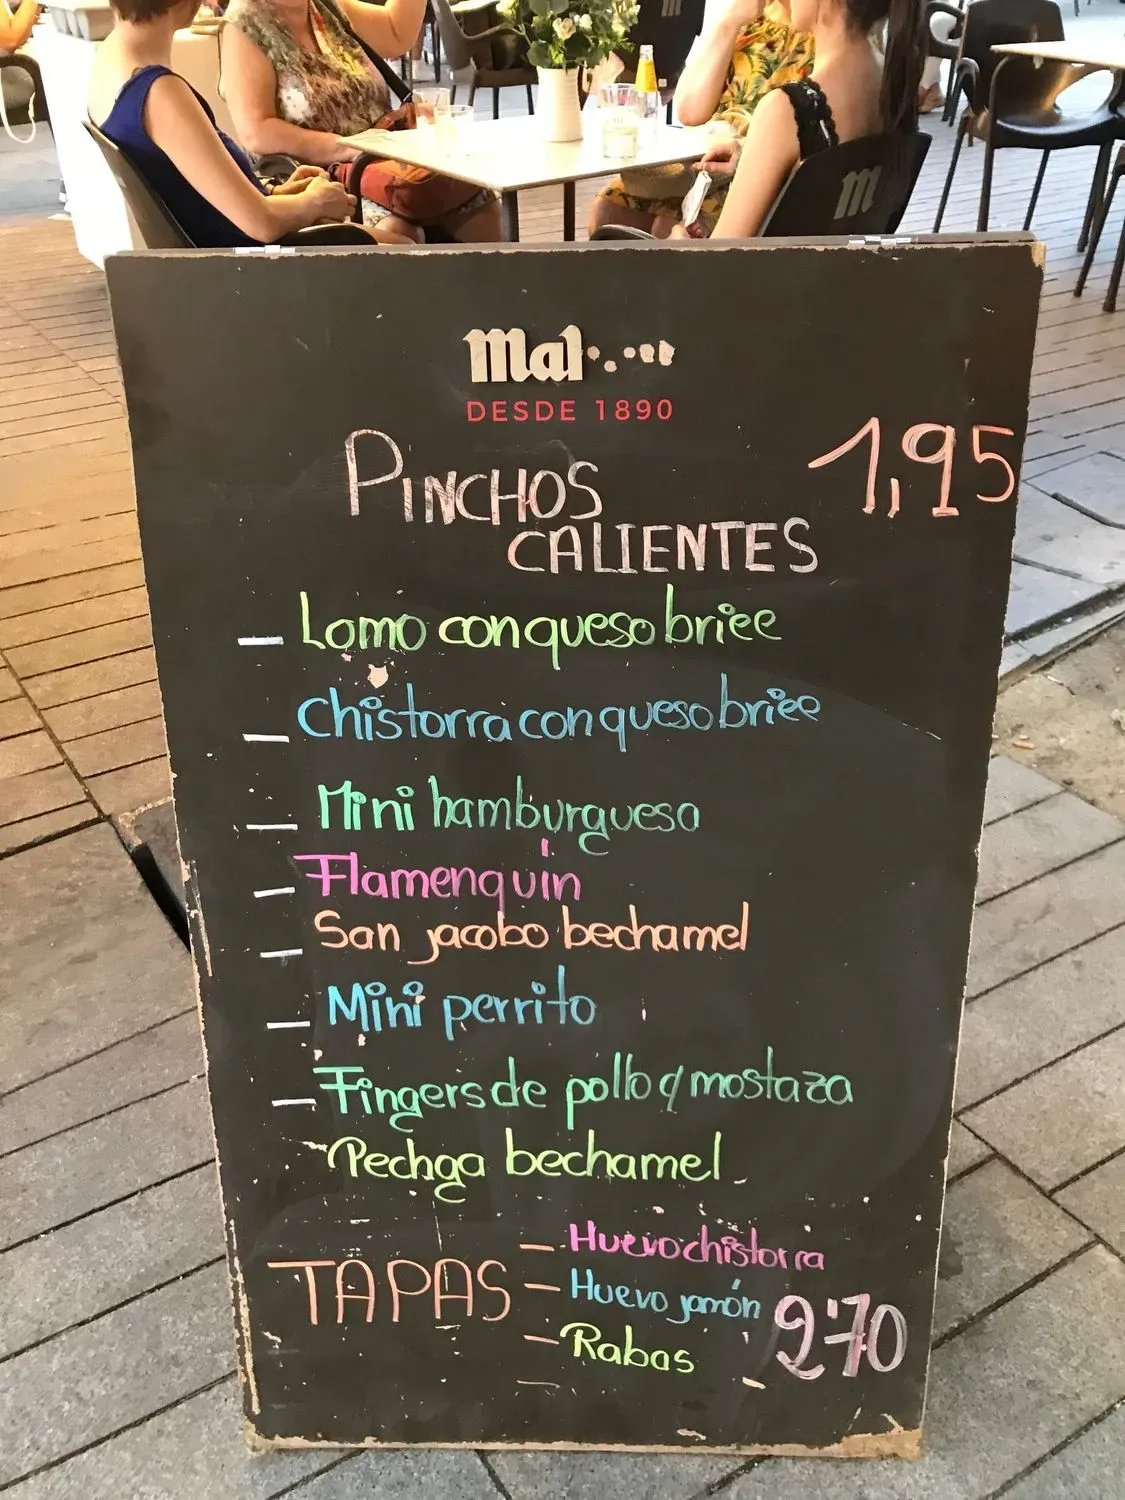 m
m
Mal
DESDE 1890
PINCHOS 1,95
CALIENTES
Lomo con queso briee
Chistorra con queso briee
Mini hamburguesa
Flamenquín
San jacobo bechamel
Mini perrito
Fingers de pollo y mostaza
Pechga bechamel
TAPAS
Huevo chistorra
Huevo jamón
Rabas
2'70